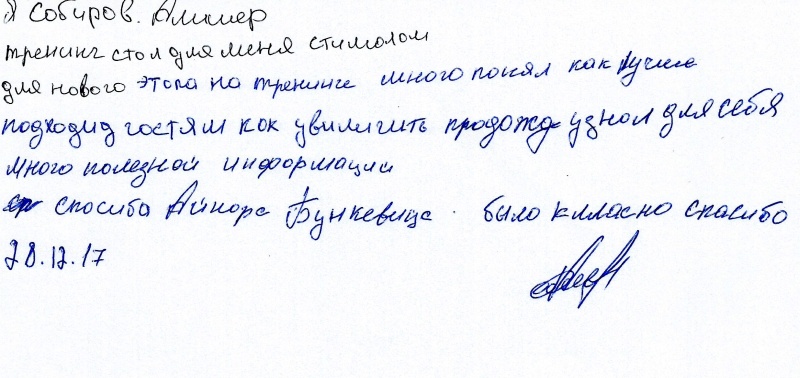 Я Собиров. Алишер
тренинг стал для меня стимолом
для нового этапа на тренинге много понял как лучше
подходид гостям как увиличить продожд узнал для себя
много полезной информации
спосиба Айнарс Бункевица. было клласно спасибо
28.12.17